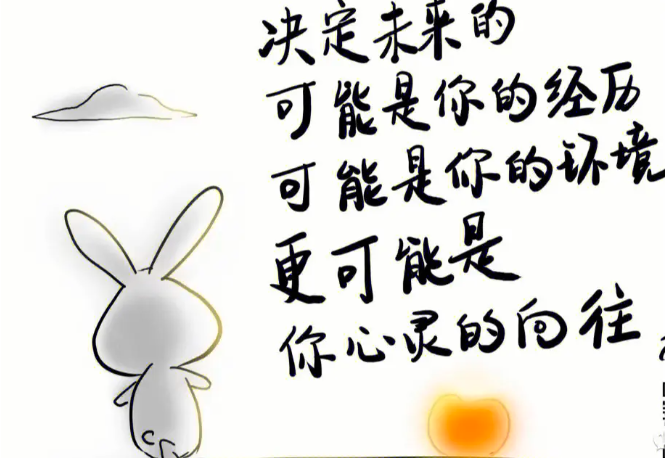 决定未来的
可能是你的经历
可能是你的环境
更可能是
你心灵的向往